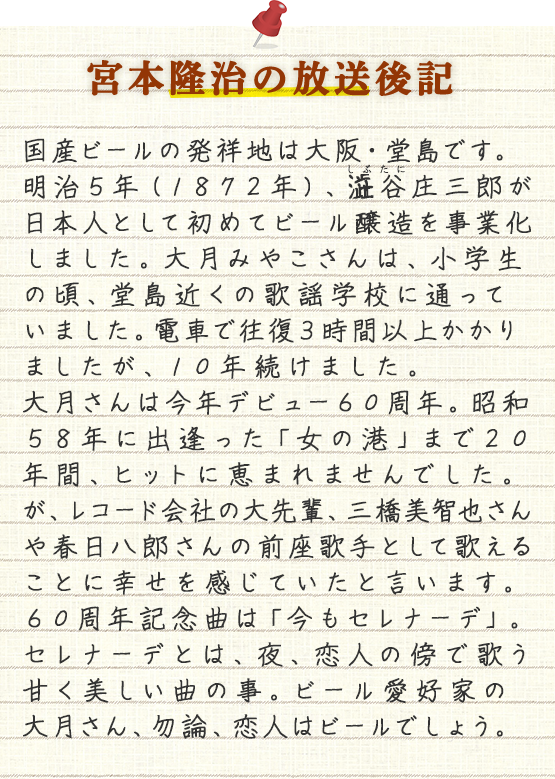 宮本隆治の放送後記
国産ビールの発祥地は大阪・堂島です。
しぶたに
明治5年(1872年)、澁谷庄三郎が
日本人として初めてビール醸造を事業化
しました。大月みやこさんは、小学生
の頃、堂島近くの歌謡学校に通って
いました。電車で往復3時間以上かかり
ましたが、10年続けました。
大月さんは今年デビュー60周年。昭和
58年に出逢った「女の港」まで20
年間、ヒットに恵まれませんでした。
が、レコード会社の大先輩、三橋美智也さん
や春日八郎さんの前座歌手として歌える
ことに幸せを感じていたと言います。
60周年記念曲は「今もセレナーデ」。
セレナーデとは、夜、恋人の傍で歌う
甘く美しい曲の事。ビール愛好家の
大月さん、勿論、恋人はビールでしょう。